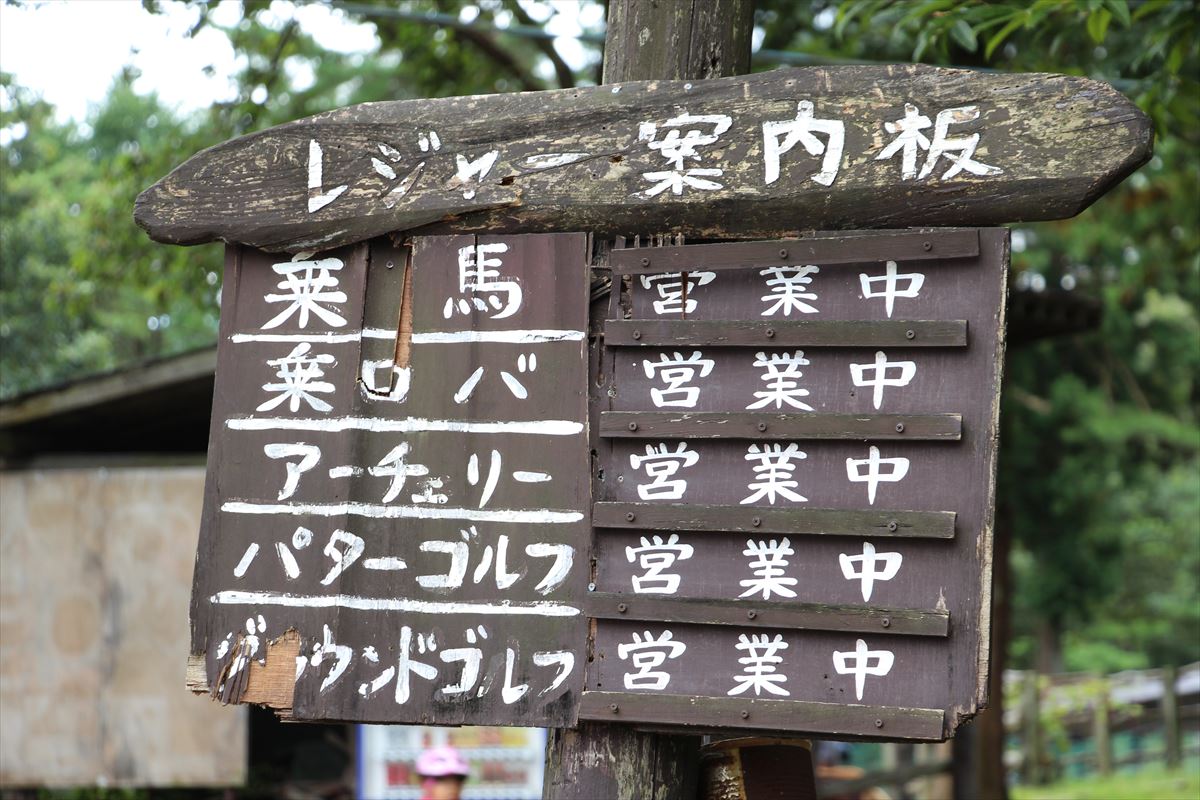 レジャー案内板
乗馬 営業中
乗ロバ 営業中
アーチェリー 営業中
パターゴルフ 営業中
グラウンドゴルフ 営業中